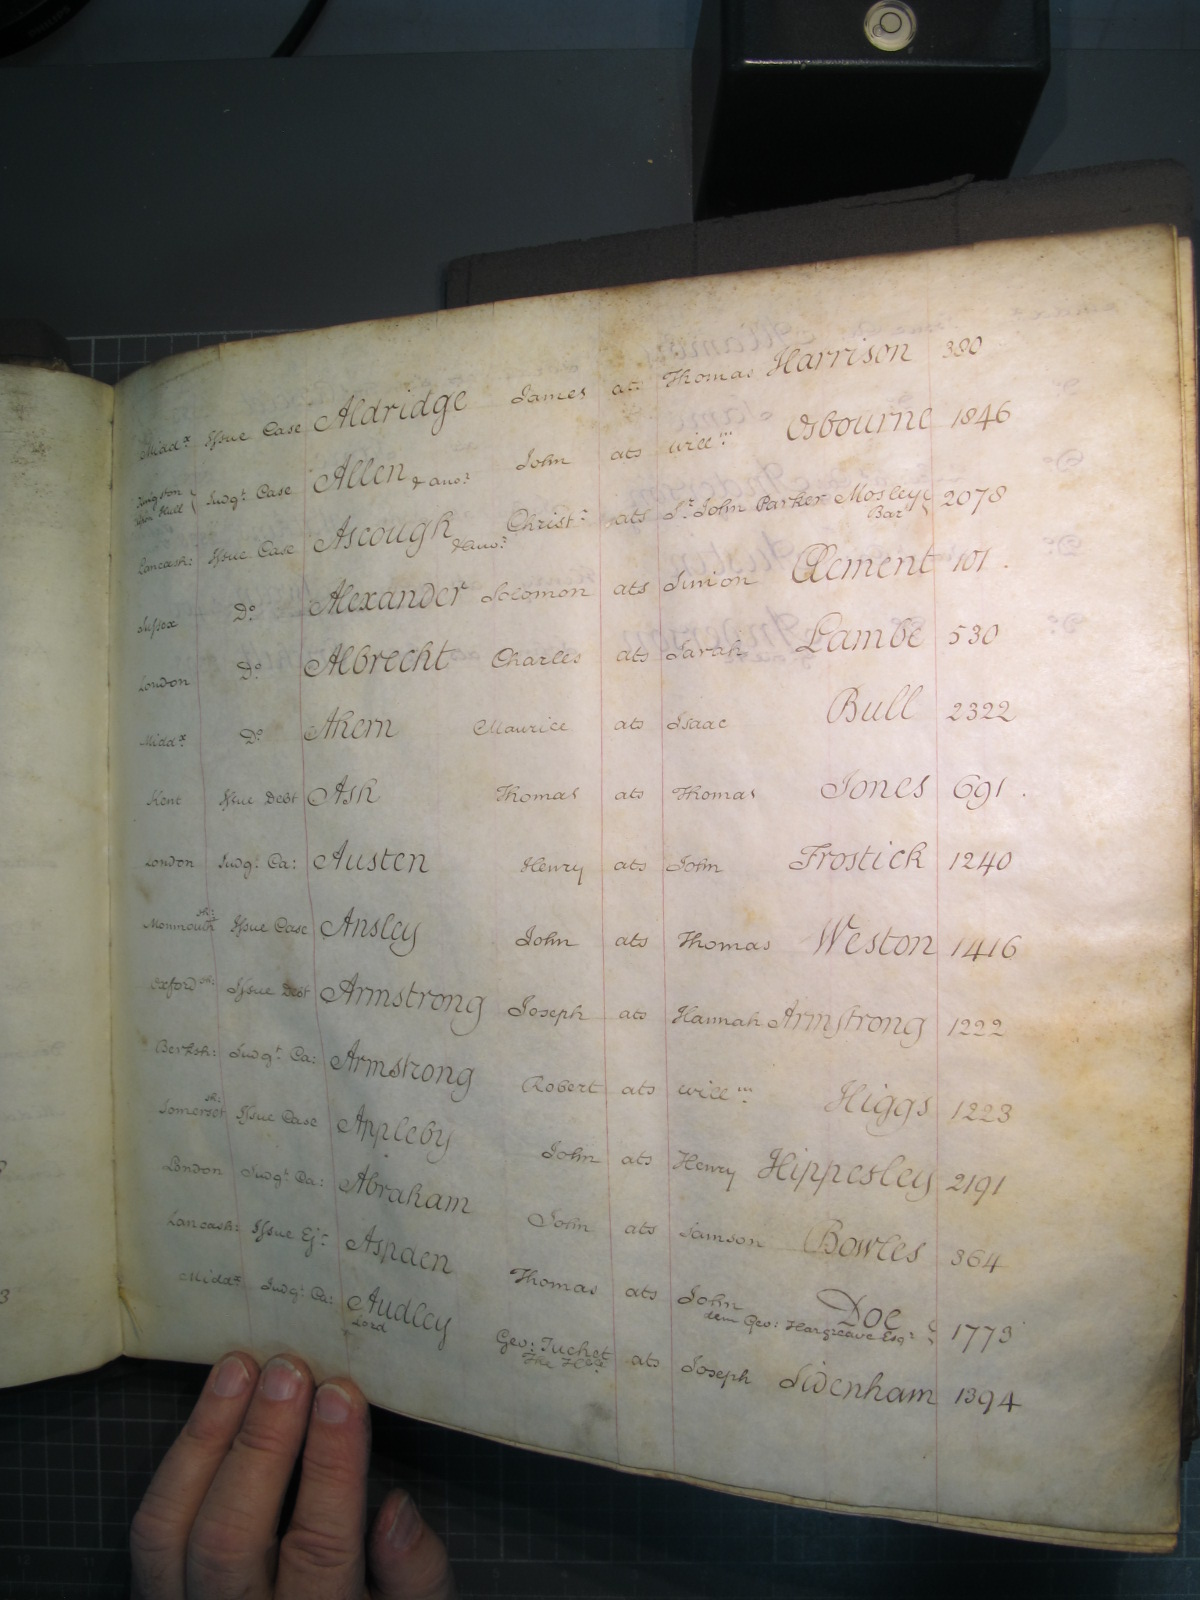 Midd.x Issue Case Aldridge James ats Thomas Harrison 380
Kingston upon Hull Judg.t Case Allen & ano.r John ats Will.m Osbourne 1846
Lancash: Issue Case Ascough & ano.r Christ.r ats S.r John Parker Mosley Bar.t 2078
Sussex D.o Alexander Solomon ats Simon Clement 101.
London D.o Albrecht Charles ats Sarah Lambe 530
Midd.x D.o Ahern Maurice ats Isaac Bull 2322
Kent Issue Debt Ash Thomas ats Thomas Jones 691.
London Judg.t Ca: Austen Henry ats John Frostick 1240
Monmouth sh: Issue Case Ansley John ats Thomas Weston 1416
Oxford sh: Issue Debt Armstrong Joseph ats Hannah Armstrong 1222
Berksh: Judg.t Ca: Armstrong Robert ats Will.m Higgs 1223
Somerset sh: Issue Case Appleby John ats Henry Hippesley 2191
London Judg.t Ca: Abraham John ats Samson Bowles 364
Lancash: Issue Ej.t Aspden Thomas ats John Doe dem Geo: Hargreave Esq.r 1773
Midd.x Judg.t Ca: Audley Lord Geo: Tuchet ats Joseph Sidenham 1394